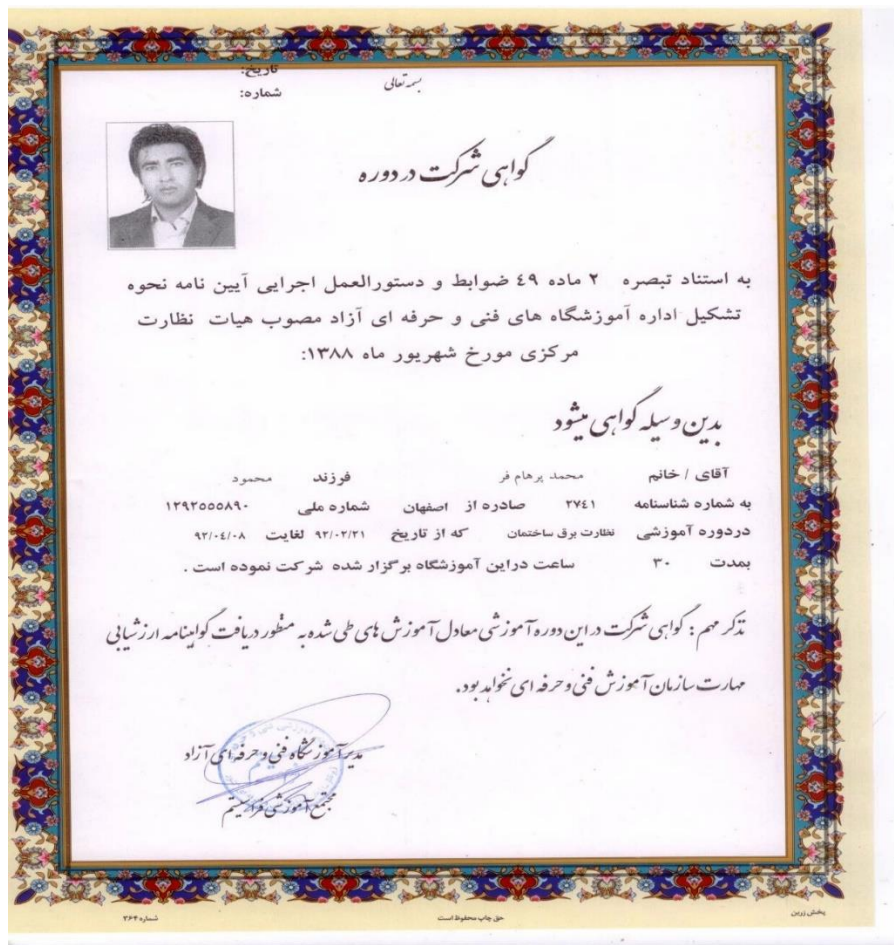 بسمه تعالی
تاریخ:
شماره:
گواهی شرکت در دوره
به استناد تبصره ۲ ماده ٤٩ ضوابط و دستورالعمل اجرایی آیین نامه نحوه
تشکیل اداره آموزشگاه های فنی و حرفه ای آزاد مصوب هیات نظارت
مرکزی مورخ شهریور ماه ۱۳۸۸:
بدین وسیله گواهی میشود
آقای / خانم محمد پرهام فر فرزند محمود
به شماره شناسنامه ۲۷٤۱ صادره از اصفهان شماره ملی ۱۲۹۲۵۵۵۸۹۰
دردوره آموزشی نظارت برق ساختمان که از تاریخ ۹۲/۰۲/۲۱ لغایت ۹۲/۰٤/۰۸
بمدت ۳۰ ساعت دراین آموزشگاه برگزار شده شرکت نموده است .
تذکر مهم : گواهی شرکت در این دوره آموزشی معادل آموزش های طی شده به منظور دریافت گواهینامه ارزشیابی
مهارت سازمان آموزش فنی و حرفه ای نخواهد بود.
مدیر آموزشگاه فنی و حرفه ای آزاد
مجتمع آموزشی فراسیستم
شماره ۳۶۴
حق چاپ محفوظ است
پخش زرین